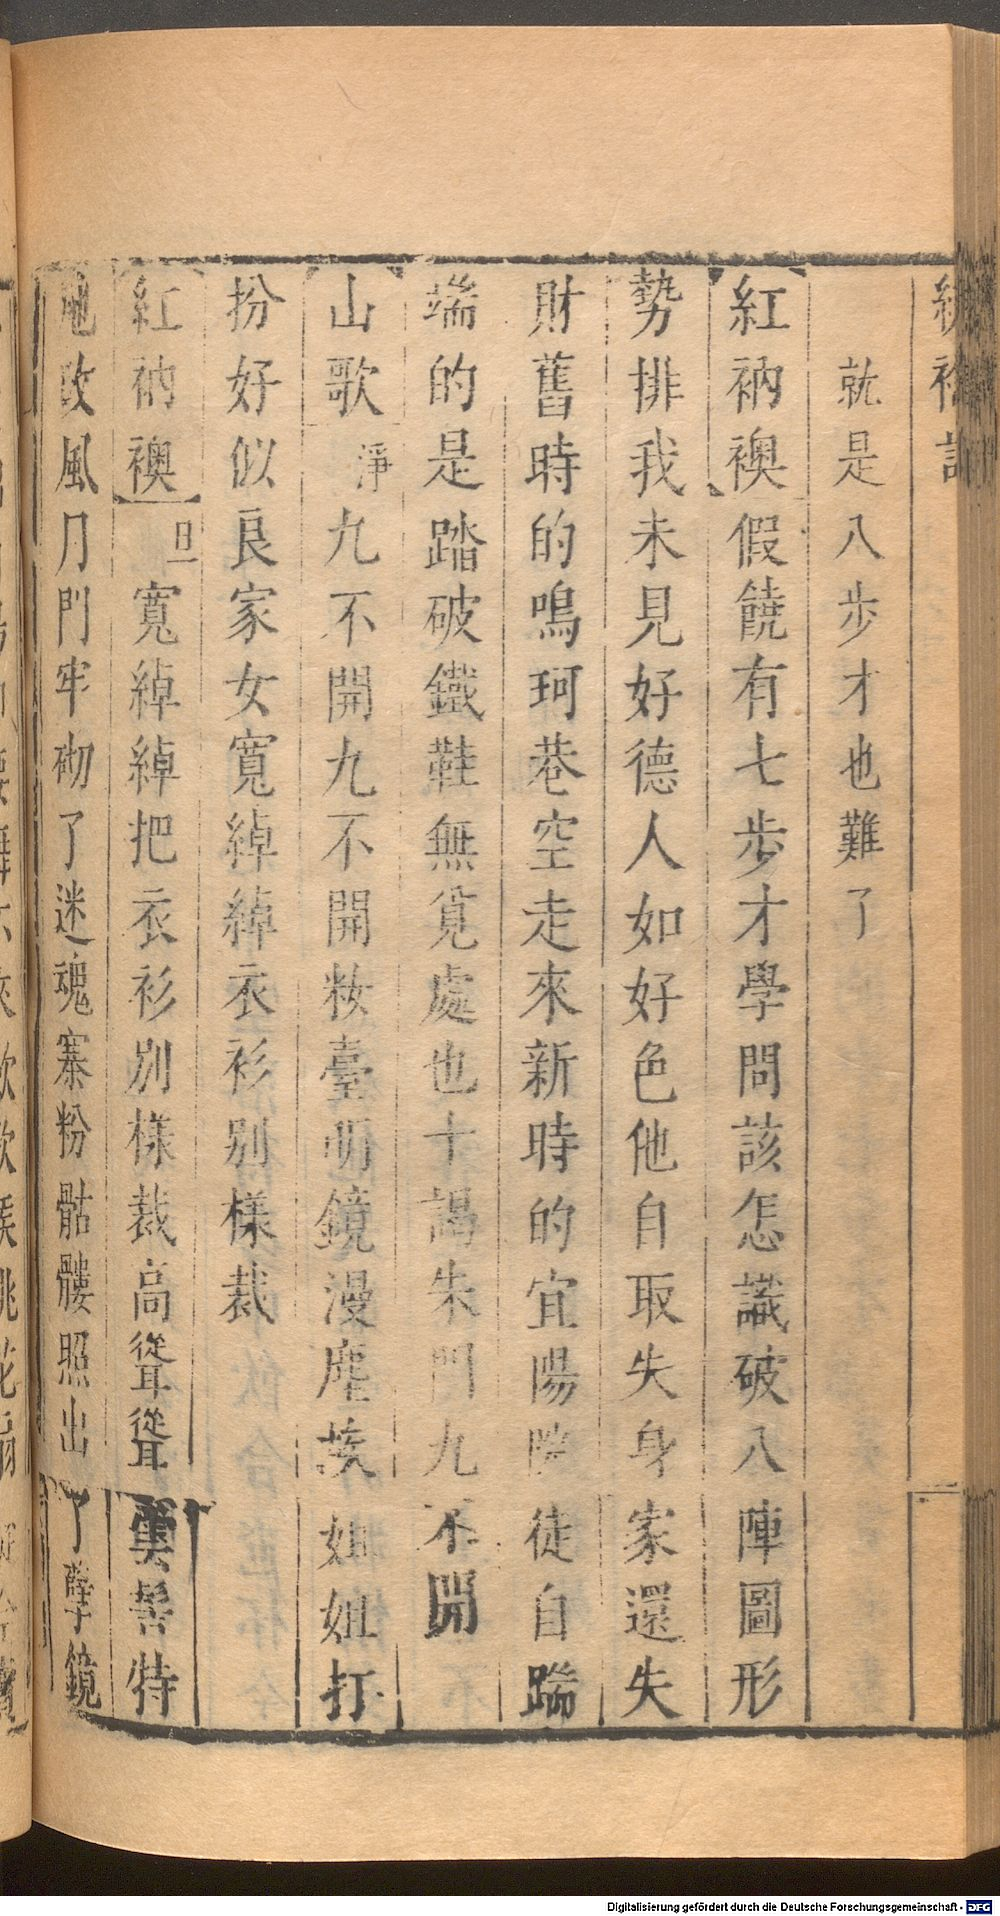 繡襦記
就是八步才也難了
紅衲襖假饒有七步才學問該怎識破八陣圖形
勢排我未見好德人如好色他自取失身家還失
財舊時的鳴珂巷空走來新時的宜陽院徒自踹
端的是踏破鐵鞋無覓處也十謁朱門九不開
山歌淨九不開九不開粧臺明鏡漫塵埃姐姐打
扮好似良家女寬綽綽衣衫別樣裁
紅衲襖旦寬綽綽把衣衫別樣裁高聳聳雲髻特
地改風月門牢砌了迷魂寨粉骷髏照出了孽鏡
Digitalisierung gefördert durch die Deutsche Forschungsgemeinschaft - DFG